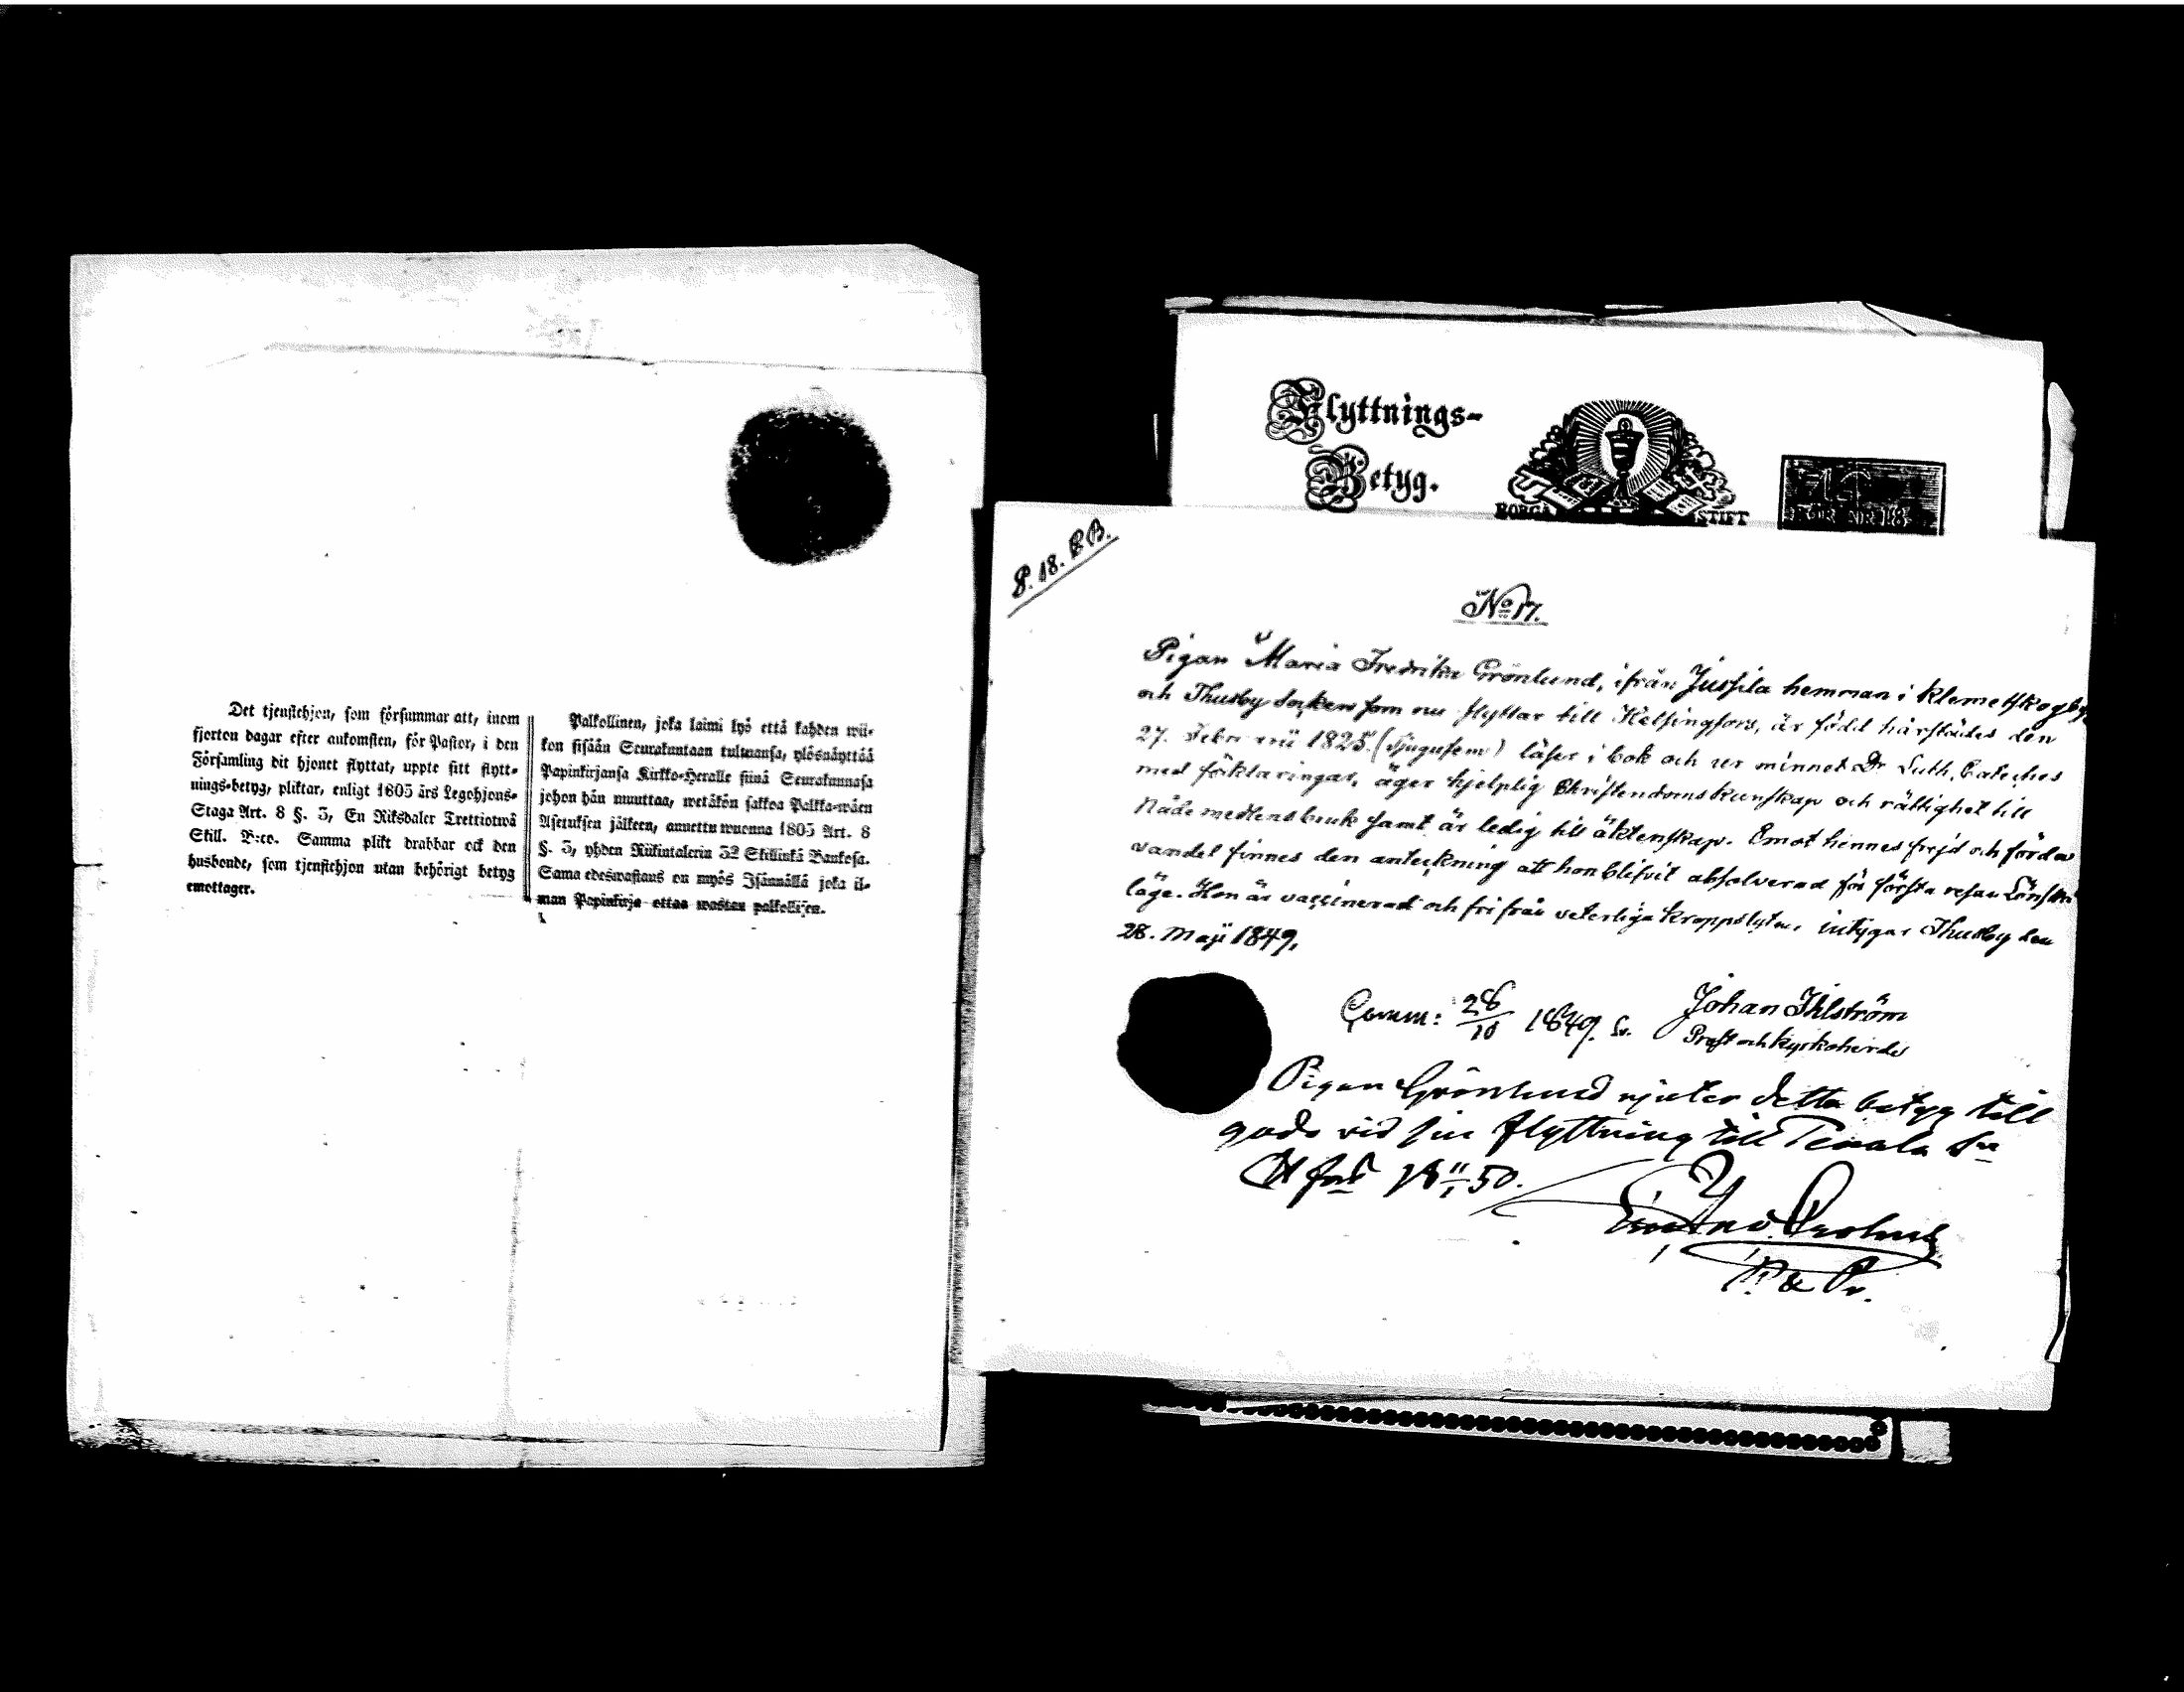 Det tjenstehjon, som försummar att, inom
fjorton dagar efter ankomsten, för Pastor, i den
Församling dit hjonet flyttat, uppte sitt flytt-
nings-betyg, pliktar, enligt 1805 års Legohjons-
Stega Art. 8 §. 3, En Riksdaler Trettiotwå
Skill. B:co. Samma plikt drabbar ock den
husbonde, som tjenstehjon utan behörigt betyg
emottager.
Palkollinen, joka laimi lyö että kahden wii-
kon sisään Seurakuntaan tultuansa, ylösnäyttää
Papinkirjansa Kirkko-Herralle siinä Seurakunnasa
johon hän muuttaa, wetäkön sakkoa Palkka-wäen
Asetuksen jälkeen, annettu wuonna 1805 Art. 8
§. 3, yhden Riikintalerin 32 Skillinkiä Bankosa.
Sama edeswastaus on myös Isännällä joka il-
man Papinkirja ottaa wastan palkollisen.
Flyttnings-
Betyg.
BORGÅ STIFT
P. 18. BB.
No 17.
Pigan Maria Fredrika Grönlund, ifrån Jussila hemman i Klemetskog by
och Thusby Socken som nu flyttar till Helsingfors, är född härstädes den
27. Februarii 1825. (tjugufem) läser i bok och ur minnet Dr Luth. Cateches
med förklaringar, äger hjelplig Christendoms kunskap och rättighet till
Nåde medlens bruk samt är ledig till äktenskap. Emot hennes frejd och förda
vandel finnes den anteckning att hon blifvit absolverad för första resan Lönska
läge. Hon är vaccinerad och fri från veterliga kroppslyten, intygar Thusby den
28. Maji 1849.
Comm: 28/10 1849. Johan Ihlström
Prost och kyrkoherde
Pigan Grönlund njuter detta betyg till
godo vid sin flyttning till Tenala Sn
H fors 18 11/1 50.